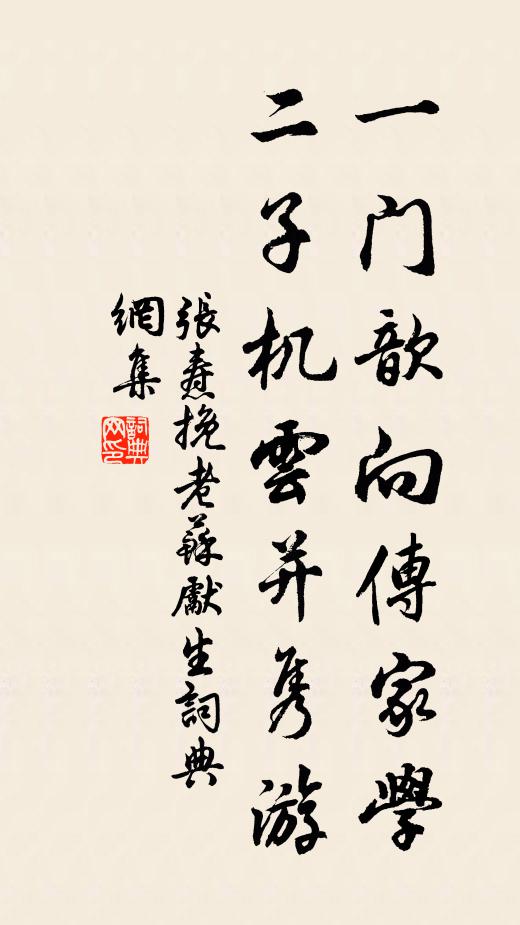 一门歆向傳家學
二子机雲并隽游
張燾挽老蘇獻生詞典
網集
詞典
网印